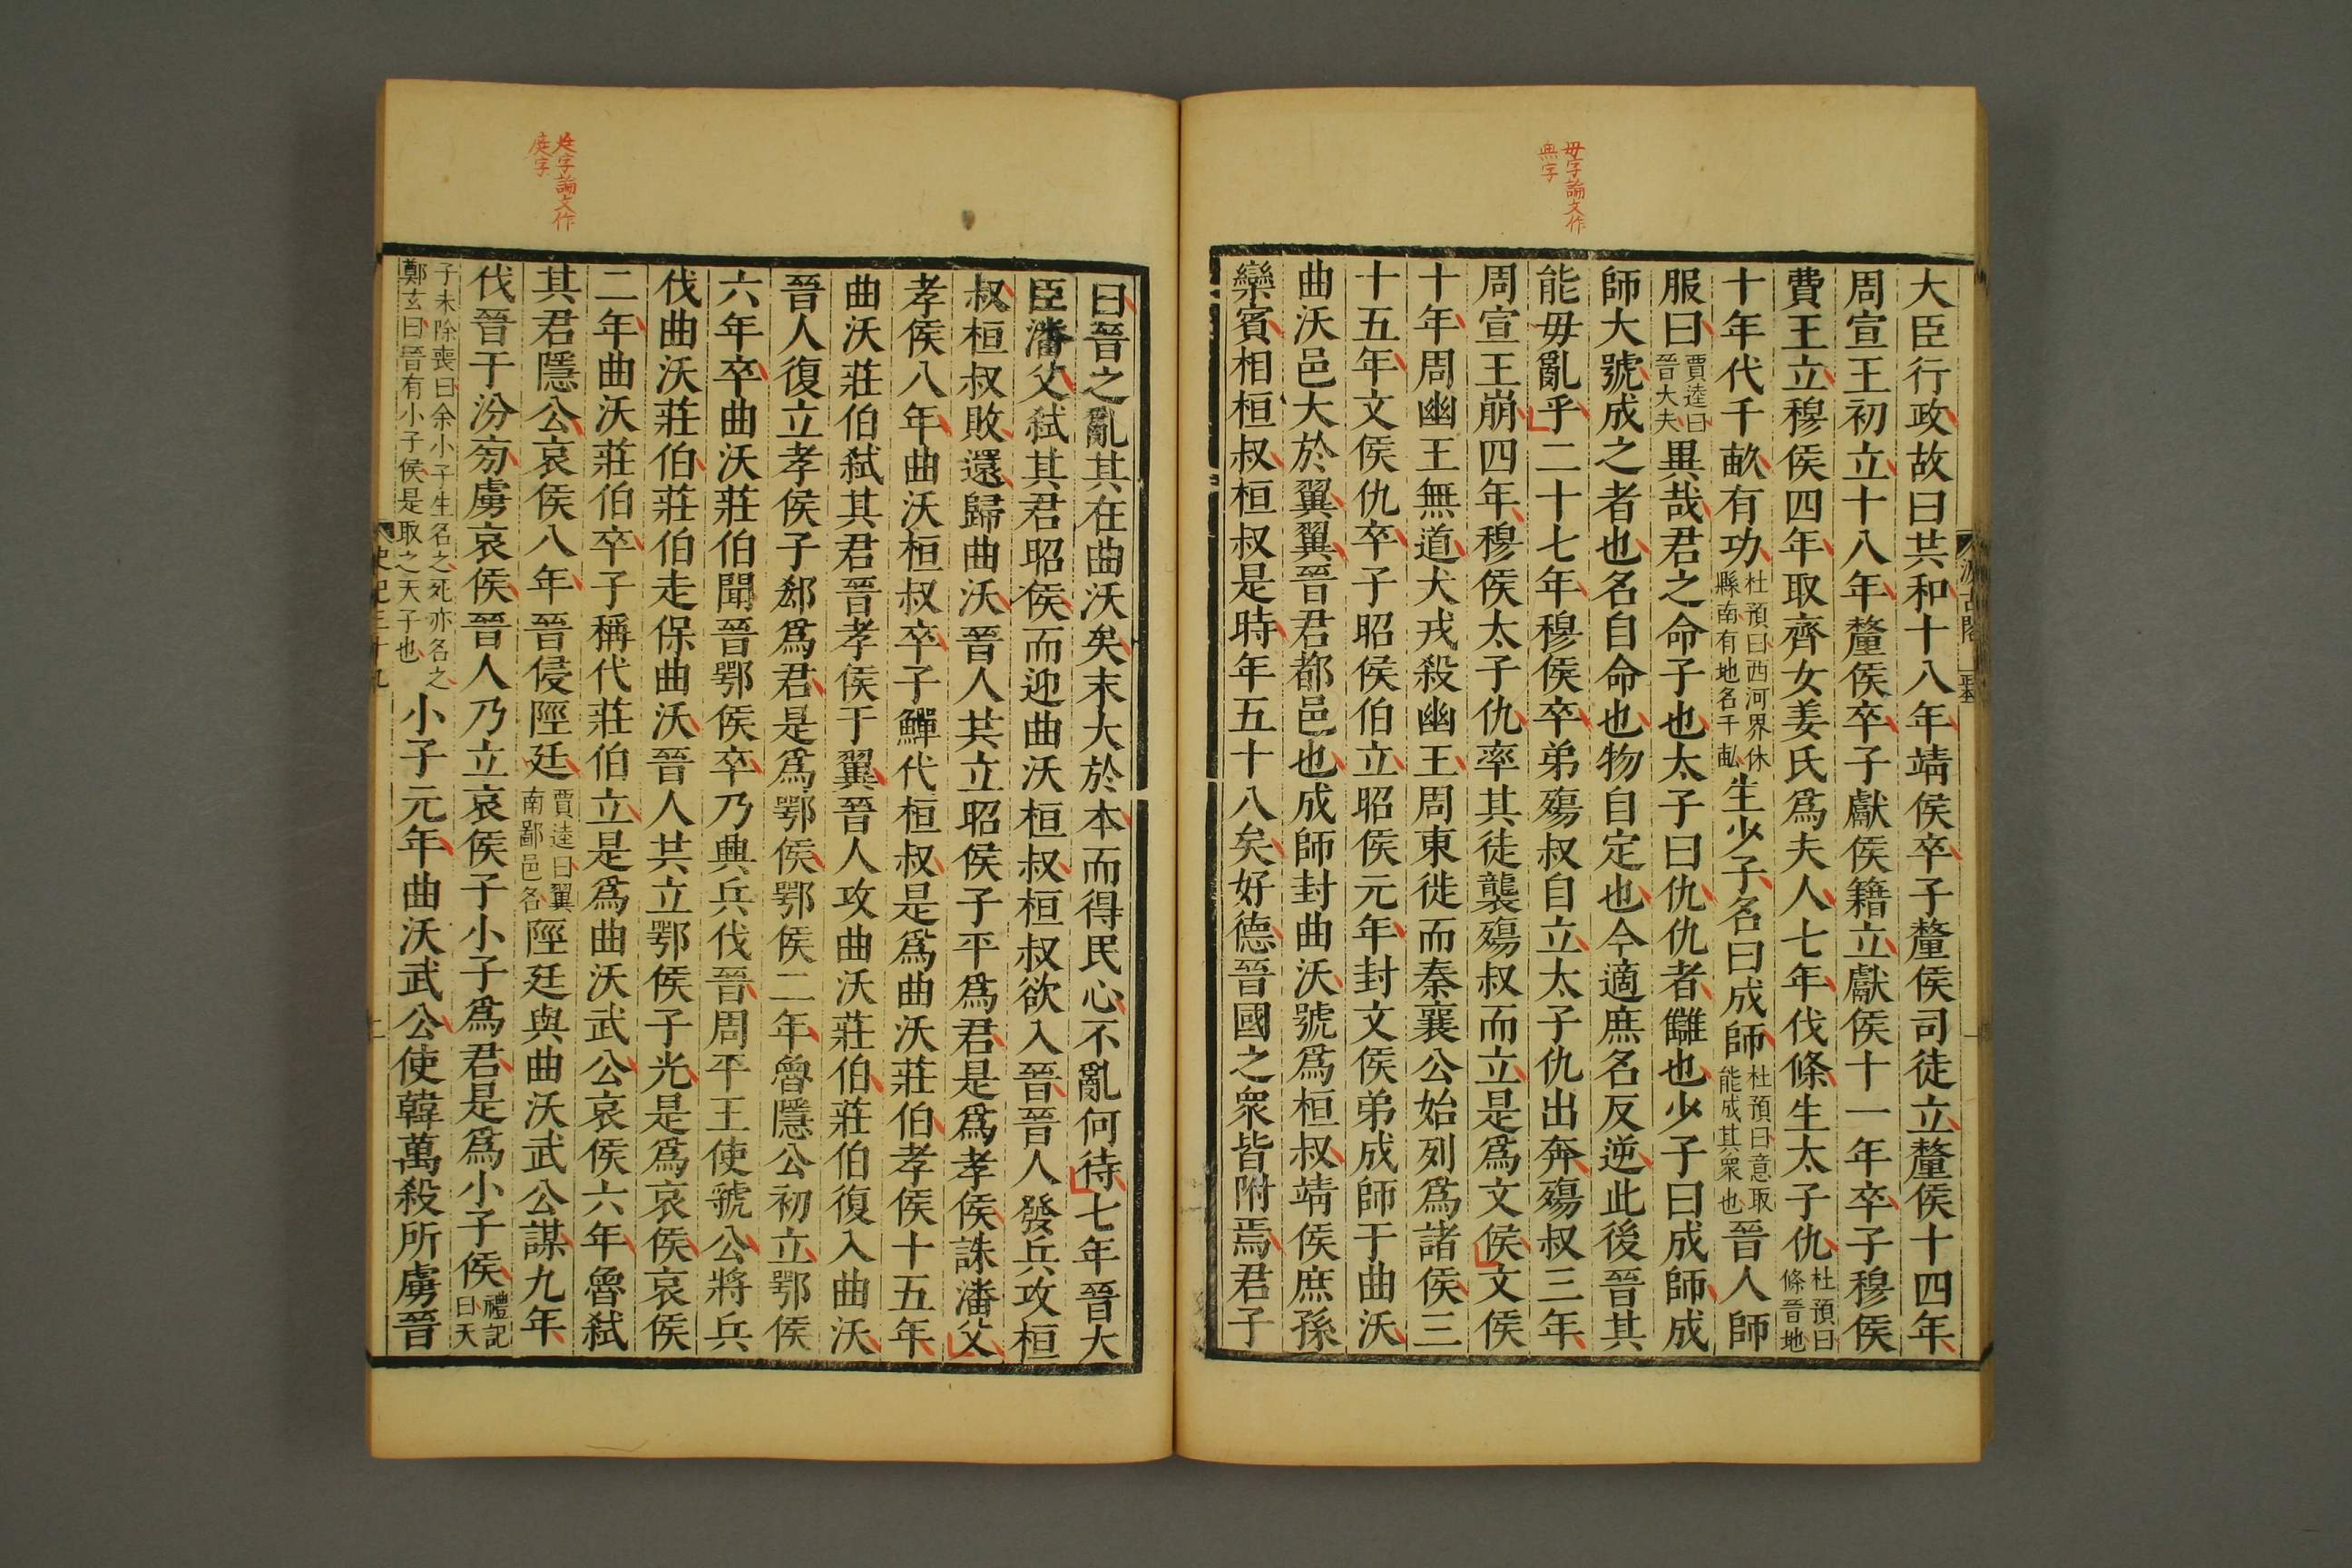 毋字論文作
無字
大臣行政故曰共和十八年靖侯卒子釐侯司徒立釐侯十四年
周宣王初立十八年釐侯卒子獻侯籍立獻侯十一年卒子穆侯
費王立穆侯四年取齊女姜氏爲夫人七年伐條生太子仇杜預曰條晉地
十年代千畝有功杜預曰西河界休縣南有地名千畝生少子名曰成師杜預曰意取能成其衆也晉人師
服曰賈逵曰晉大夫異哉君之命子也太子曰仇仇者讎也少子曰成師成
師大號成之者也名自命也物自定也今適庶名反逆此後晉其
能毋亂乎二十七年穆侯卒弟殤叔自立太子仇出奔殤叔三年
周宣王崩四年穆侯太子仇率其徒襲殤叔而立是爲文侯文侯
十年周幽王無道犬戎殺幽王周東徙而秦襄公始列爲諸侯三
十五年文侯仇卒子昭侯伯立昭侯元年封文侯弟成師于曲沃
曲沃邑大於翼翼晉君都邑也成師封曲沃號爲桓叔靖侯庶孫
欒賓相桓叔桓叔是時年五十八矣好德晉國之衆皆附焉君子
庭字論文作
庭字
曰晉之亂其在曲沃矣末大於本而得民心不亂何待七年晉大
臣潘父弑其君昭侯而迎曲沃桓叔桓叔欲入晉晉人發兵攻桓
叔桓叔敗還歸曲沃晉人共立昭侯子平爲君是爲孝侯誅潘父
孝侯八年曲沃桓叔卒子鱓代桓叔是爲曲沃莊伯孝侯十五年
曲沃莊伯弑其君晉孝侯于翼晉人攻曲沃莊伯莊伯復入曲沃
晉人復立孝侯子郄爲君是爲鄂侯鄂侯二年魯隱公初立鄂侯
六年卒曲沃莊伯聞晉鄂侯卒乃興兵伐晉周平王使虢公將兵
伐曲沃莊伯莊伯走保曲沃晉人共立鄂侯子光是爲哀侯哀侯
二年曲沃莊伯卒子稱代莊伯立是爲曲沃武公哀侯六年魯弑
其君隱公哀侯八年晉侵陘廷賈逵曰翼南鄙邑名陘廷與曲沃武公謀九年
伐晉于汾旁虜哀侯晉人乃立哀侯子小子爲君是爲小子侯禮記曰天
子未除喪曰余小子生名之死亦名之鄭玄曰晉有小子侯是取之天子也小子元年曲沃武公使韓萬殺所虜晉